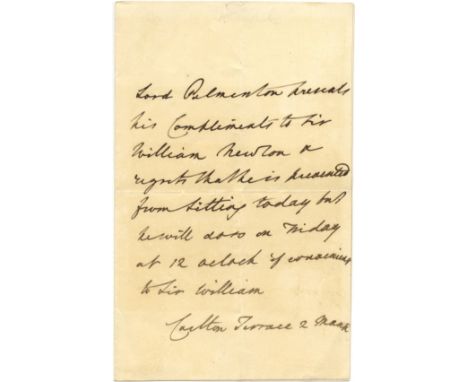 Lord Palmerston presents
his Compliments to Sir
William Newton &
regrets that he is prevented
from Sitting today but
he will do so on Friday
at 12 oclock if convenient
to Sir William
Carlton Terrace 2 March